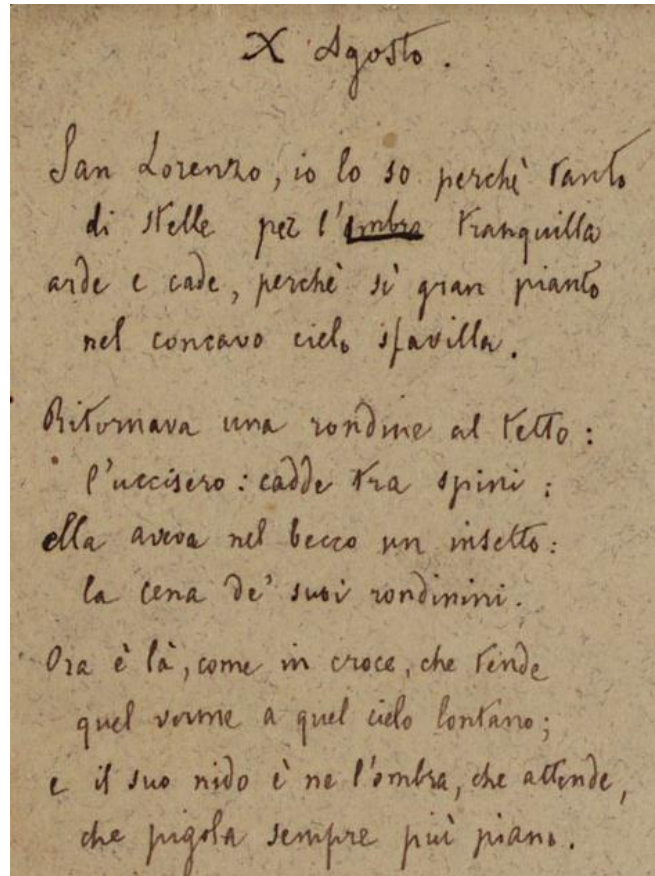 X Agosto.
San Lorenzo, io lo so perchè tanto
di stelle per l'ombra tranquilla
arde e cade, perchè sì gran pianto
nel concavo cielo sfavilla.
Ritornava una rondine al tetto:
l'uccisero: cadde tra spini:
ella aveva nel becco un insetto:
la cena de' suoi rondinini.
Ora è là, come in croce, che tende
quel verme a quel cielo lontano;
e il suo nido è ne l'ombra, che attende,
che pigola sempre più piano.